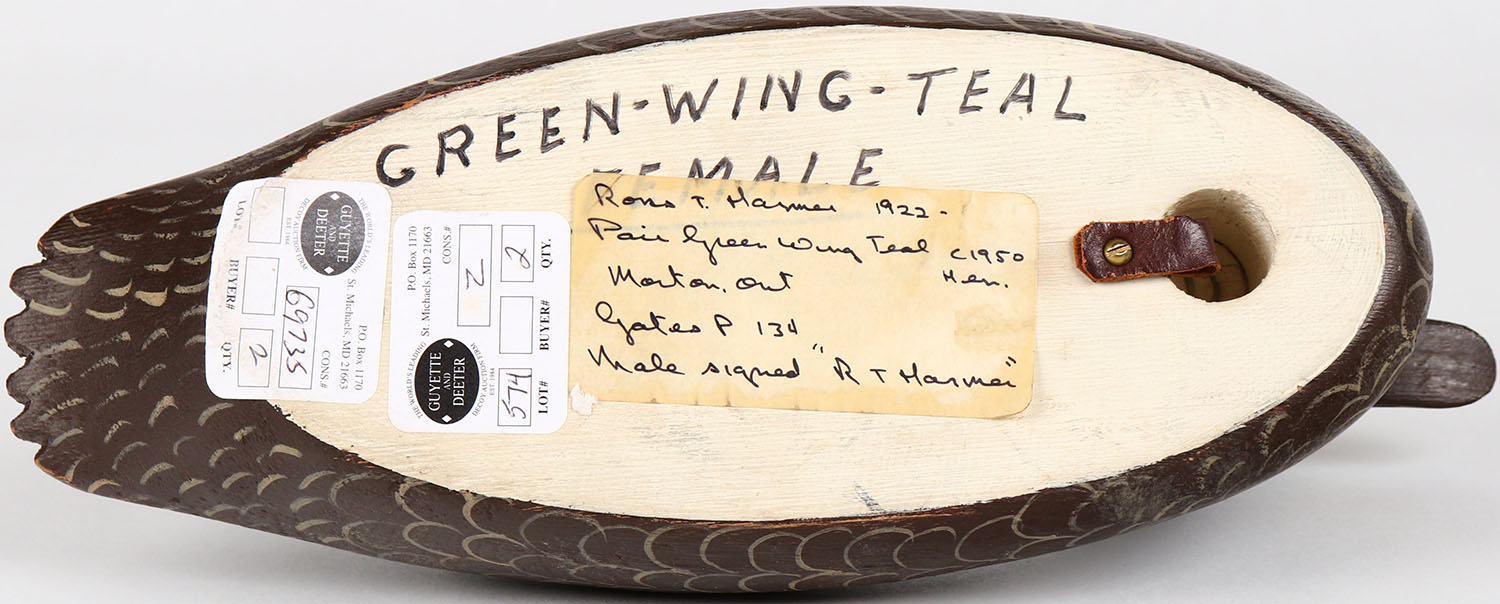 GREEN-WING-TEAL
FEMALE
Ross T. Harmer 1922-
Pair Green Wing Teal C1950
Morton, Ont Hen.
Gates P 134
Male signed "R T Harmer"
THE WORLD'S LEADING
GUYETTE
AND
DEETER
DECOY AUCTION FIRM
EST. 1984
P.O. Box 1170
St. Michaels, MD 21663
CONS.#
69735
LOT#
BUYER#
QTY.
2
P.O. Box 1170
St. Michaels, MD 21663
CONS.#
2
2
QTY.
BUYER#
THE WORLD'S LEADING
GUYETTE
AND
DEETER
DECOY AUCTION FIRM
EST. 1984
574
LOT#